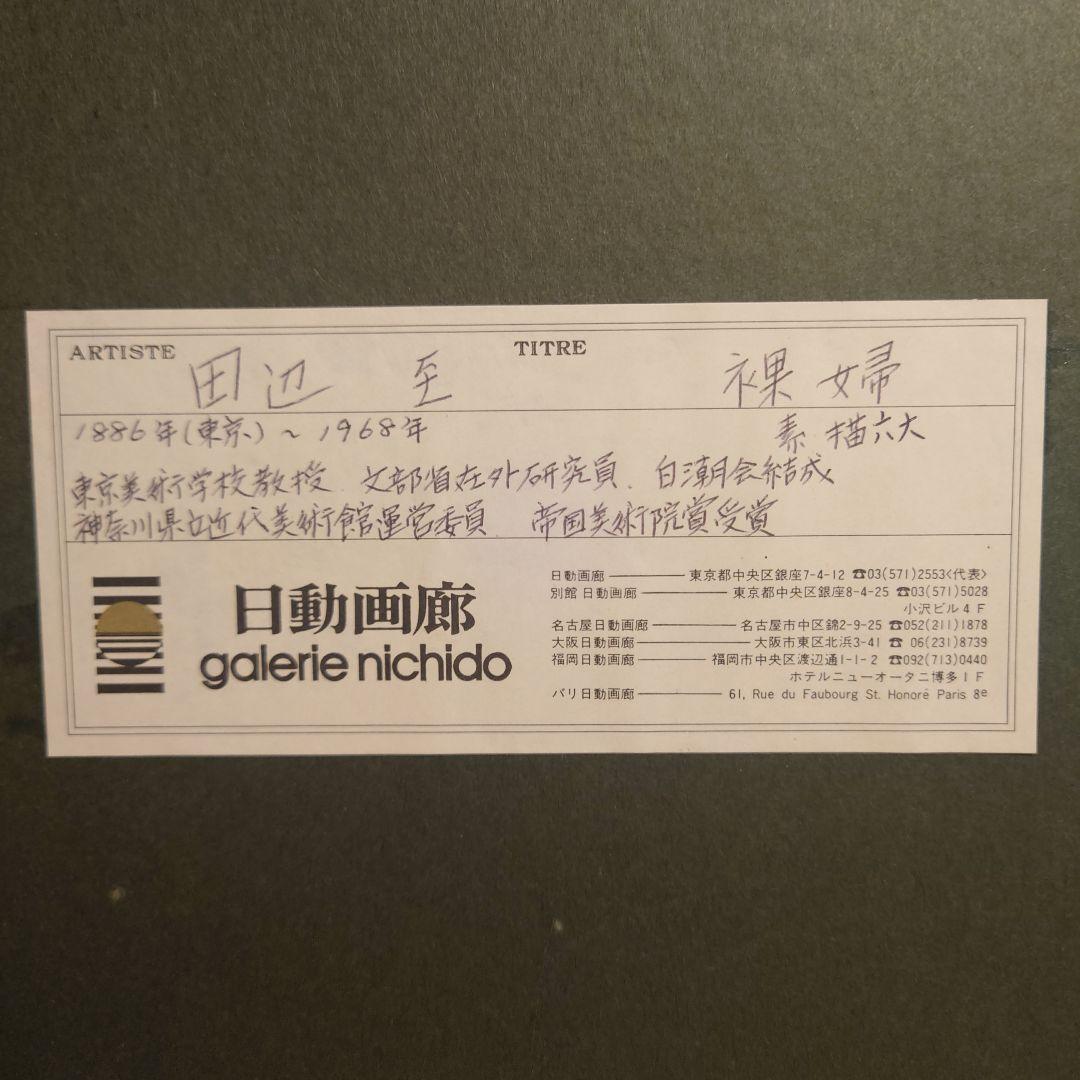 ARTISTE 田辺 至 TITRE 裸婦
1886年(東京)～1968年 素描六大
東京美術学校教授、文部省在外研究員、白潮会結成
神奈川県立近代美術館運営委員、帝国美術院賞受賞
日動画廊
galerie nichido
日動画廊 東京都中央区銀座7-4-12 ☎03(571)2553<代表>
別館 日動画廊 東京都中央区銀座8-4-25 ☎03(571)5028
小沢ビル4F
名古屋日動画廊 名古屋市中区錦2-9-25 ☎052(211)1878
大阪日動画廊 大阪市東区北浜3-41 ☎ 06(231)8739
福岡日動画廊 福岡市中央区渡辺通1-1-2 ☎092(713)0440
ホテルニューオータニ博多1F
パリ日動画廊 61, Rue du Faubourg St. Honoré Paris 8e